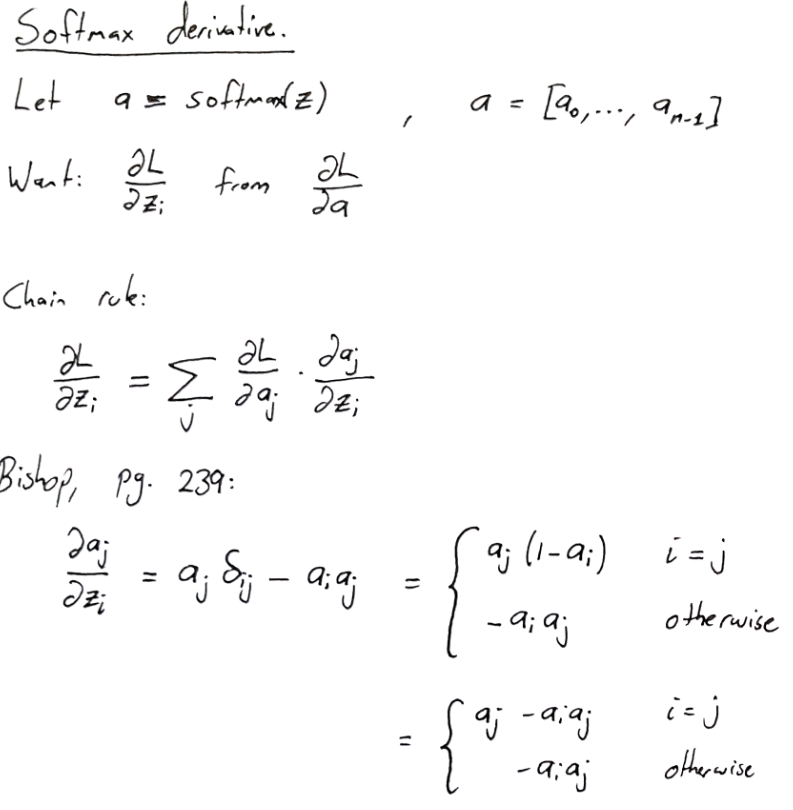 Softmax derivative.
Let a = softmax(z) , a = [a₀,..., aₙ₋₁]
Want: ∂L/∂zᵢ from ∂L/∂a
Chain rule:
∂L/∂zᵢ = ∑ⱼ ∂L/∂aⱼ · ∂aⱼ/∂zᵢ
Bishop, pg. 239:
∂aⱼ/∂zᵢ = aⱼ δᵢⱼ − aᵢaⱼ = { aⱼ (1−aᵢ) i = j
− aᵢ aⱼ otherwise
= { aⱼ − aᵢaⱼ i = j
− aᵢaⱼ otherwise